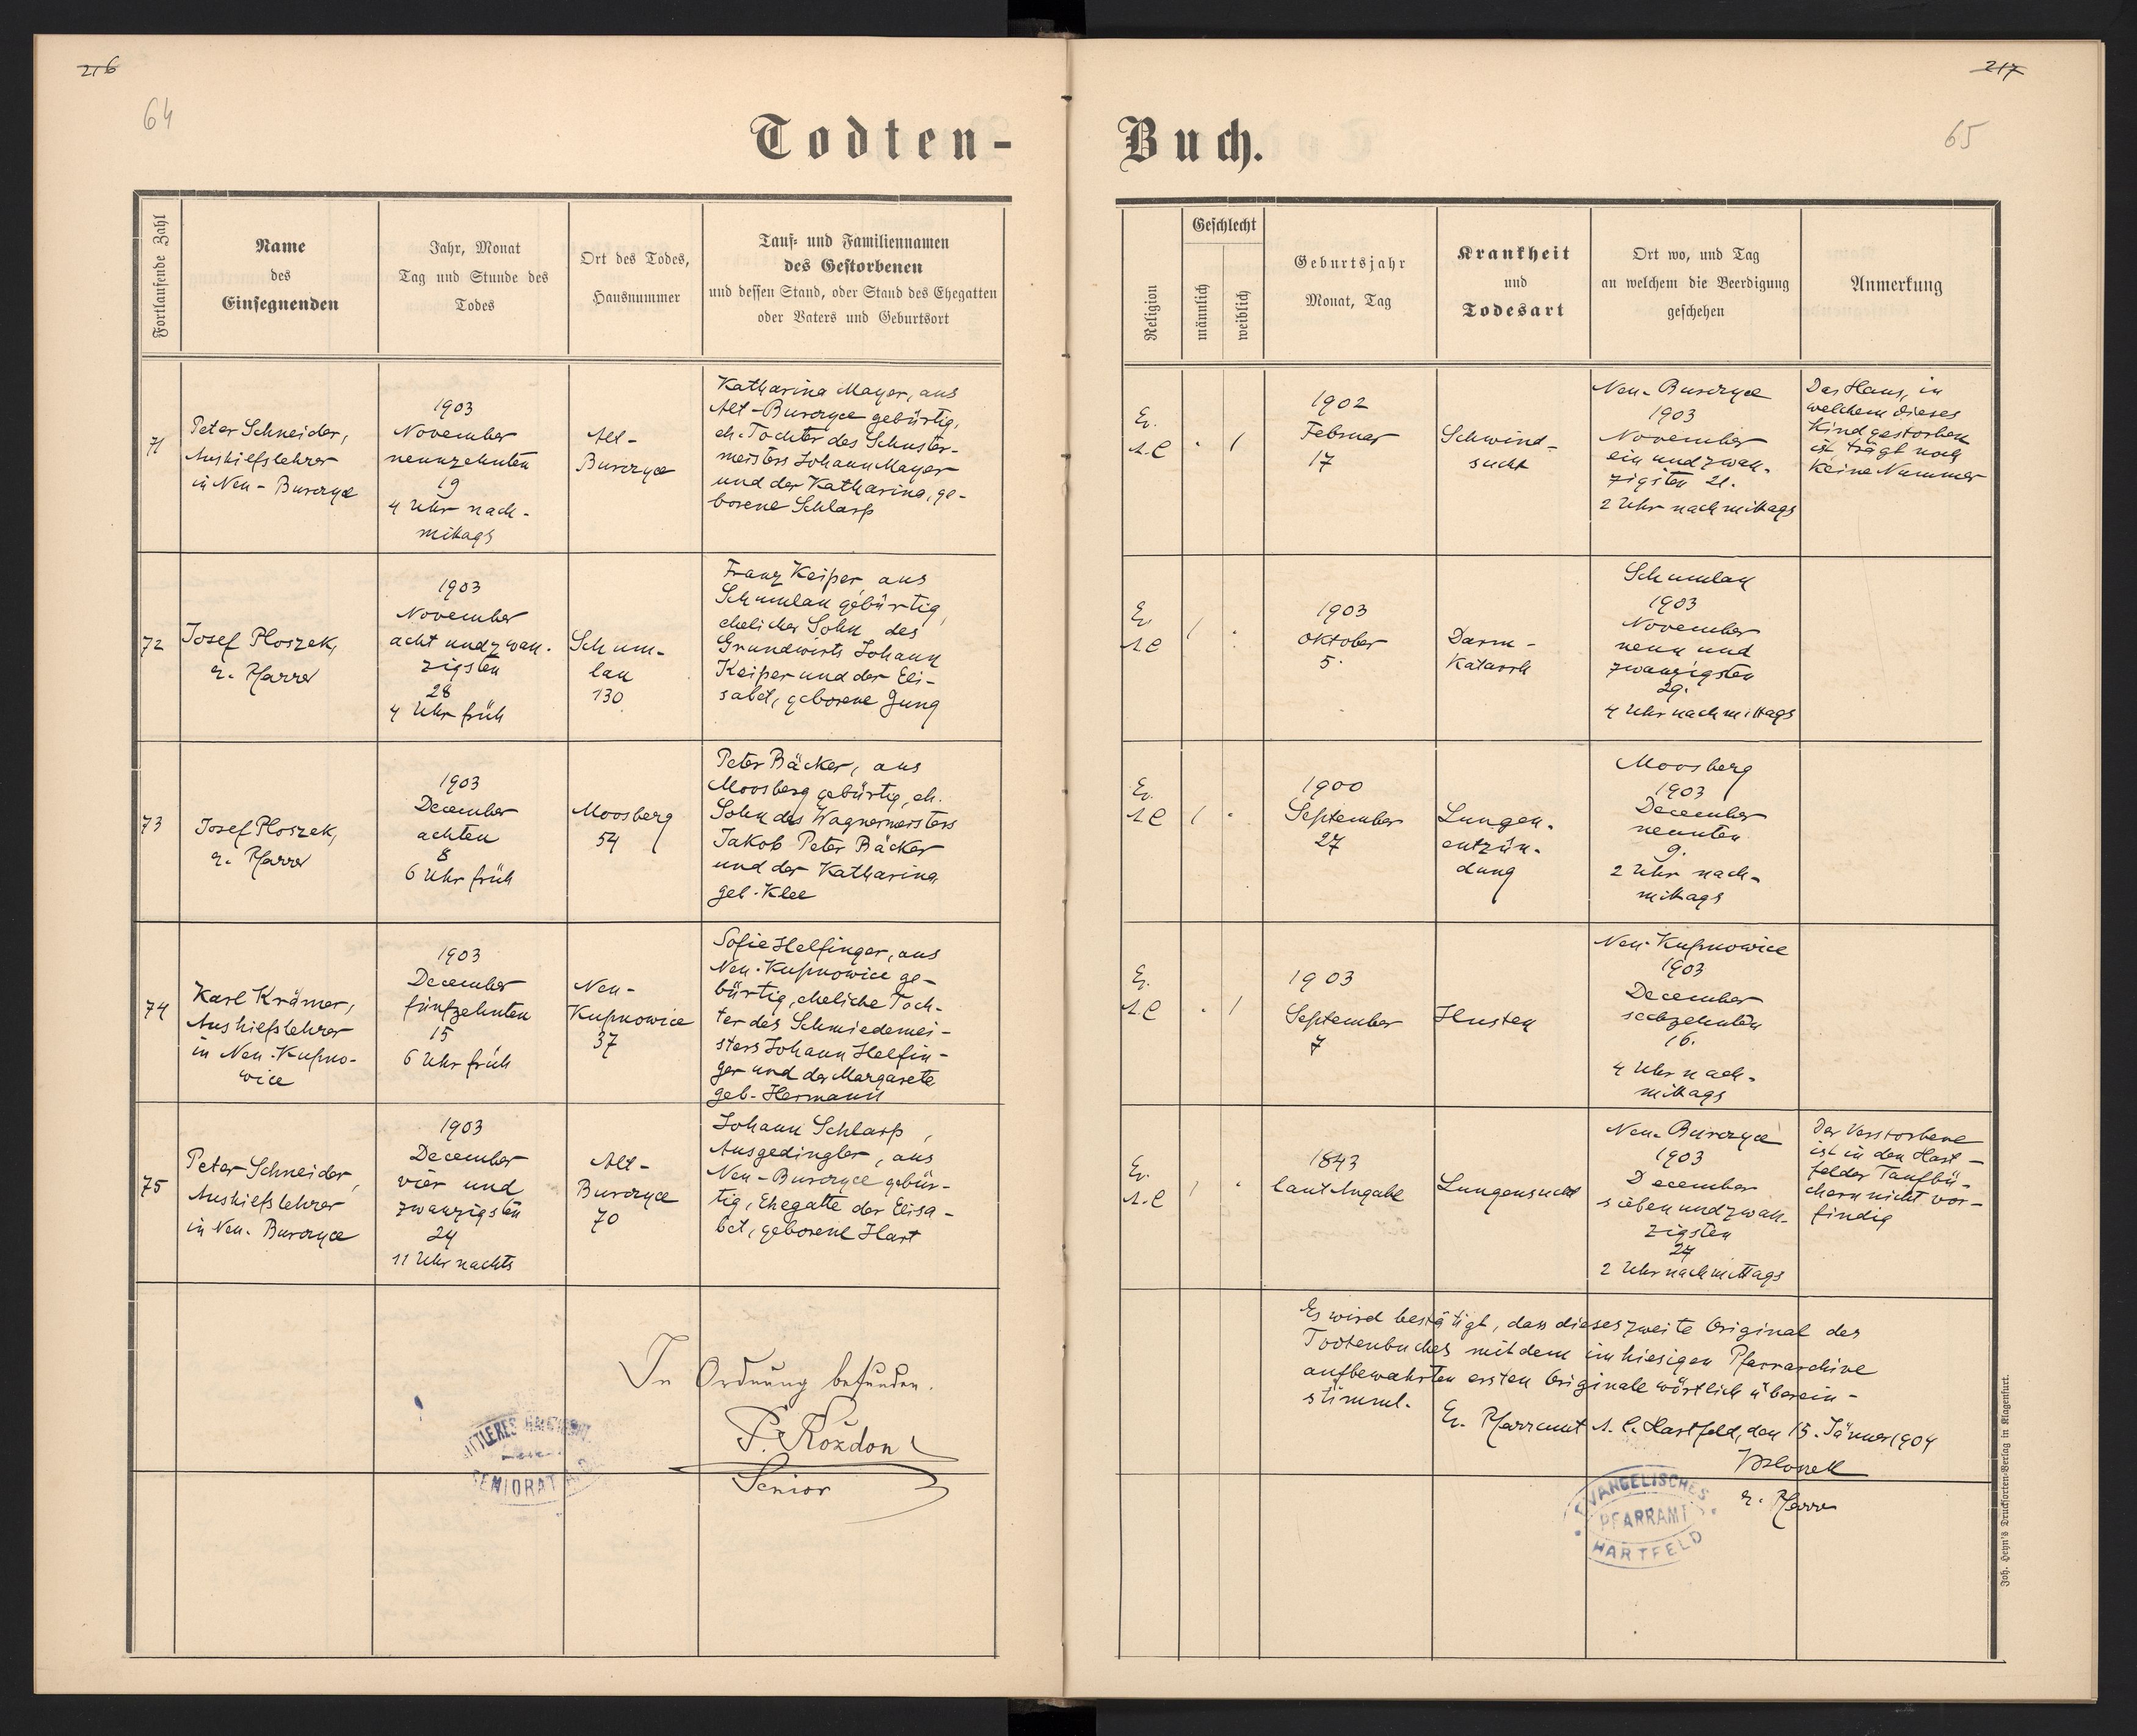 216
64
Todten-
Fortlaufende Zahl
Name
des
Einsegnenden
Jahr, Monat
Tag und Stunde des
Todes
Ort des Todes,
Hausnummer
Tauf- und Familiennamen
des Gestorbenen
und dessen Stand, oder Stand des Ehegatten
oder Vaters und Geburtsort
71
Peter Schneider,
Aushilfslehrer
in Neu-Burczyce
1903
November
neunzehnten
19
4 Uhr nach-
mittags
Alt-
Burczyce
Katharina Mayer, aus
Alt-Burczyce gebürtig,
eh. Tochter des Schuster-
meisters Johann Mayer
und der Katharina, ge-
borene Schlarp
72
Josef Ploszek,
e. Pfarrer
1903
November
acht und zwan-
zigsten
28
4 Uhr früh
Schum-
lau
130
Franz Keiper, aus
Schumlau gebürtig,
ehelicher Sohn des
Grundwirts Johann
Keiper und der Eli-
sabet, geborene Jung
73
Josef Ploszek,
e. Pfarrer
1903
December
achten
8
6 Uhr früh
Moosberg
54
Peter Bäcker, aus
Moosberg gebürtig, eh.
Sohn des Wagnermeisters
Jakob Peter Bäcker
und der Katharina
geb. Klee
74
Karl Krämer,
Aushilfslehrer
in Neu-Kupno-
wice
1903
December
fünfzehnten
15
6 Uhr früh
Neu-
Kupnowice
37
Sofie Helfinger, aus
Neu-Kupnowice ge-
bürtig, eheliche Toch-
ter des Schmiedemei-
sters Johann Helfin-
ger und der Margarete
geb. Hermann
75
Peter Schneider,
Aushilfslehrer
in Neu-Burczyce
1903
December
vier und
zwanzigsten
24
11 Uhr nachts
Alt-
Burczyce
70
Johann Schlarp,
Ausgedingler, aus
Neu-Burczyce gebür-
tig, Ehegatte der Elisa-
bet, geborene Hart
In Ordnung befunden.
P. Rozdon
Senior
SENIORAT A.B.
217
65
Buch.
Religion
Geschlecht
männlich
weiblich
Geburtsjahr
Monat, Tag
Krankheit
und
Todesart
Ort wo, und Tag
an welchem die Beerdigung
geschehen
Anmerkung
Ev.
A.C
1
1902
Februar
17
Schwind-
sucht
Neu-Burczyce
1903
November
ein und zwan-
zigsten 21.
2 Uhr nachmittags
Das Haus, in
welchem dieses
Kind gestorben
ist trägt noch
keine Nummer
Ev.
A.C
1
1903
Oktober
5.
Darm-
Katarrh
Schumlau
1903
November
neun und
zwanzigsten
29.
4 Uhr nachmittags
Ev.
A.C
1
1900
September
27
Lungen-
entzün-
dung
Moosberg
1903
December
neunten
9.
2 Uhr nach-
mittags
Ev.
A.C
1
1903
September
7
Husten
Neu-Kupnowice
1903
December
sechzehnten
16.
4 Uhr nach-
mittags
Ev.
A.C
1
1843
laut Angabe
Lungensucht
Neu-Burczyce
1903
December
sieben und zwan-
zigsten
27
2 Uhr nachmittags
Der Verstorbene
ist in den Hart-
felder Taufbü-
chern nicht vor-
findig
Es wird bestätigt, dass dieses zweite Original des
Todtenbuches mit dem im hiesigen Pfarrarchive
aufbewahrten ersten Originale wörtlich überein-
stimmt.
Ev. Pfarramt A. C. Hartfeld, den 15. Jänner 1904
e. Pfarrer
EVANGELISCHES
PFARRAMT
HARTFELD
Joh. Heyn's Drucksorten-Verlag in Klagenfurt.